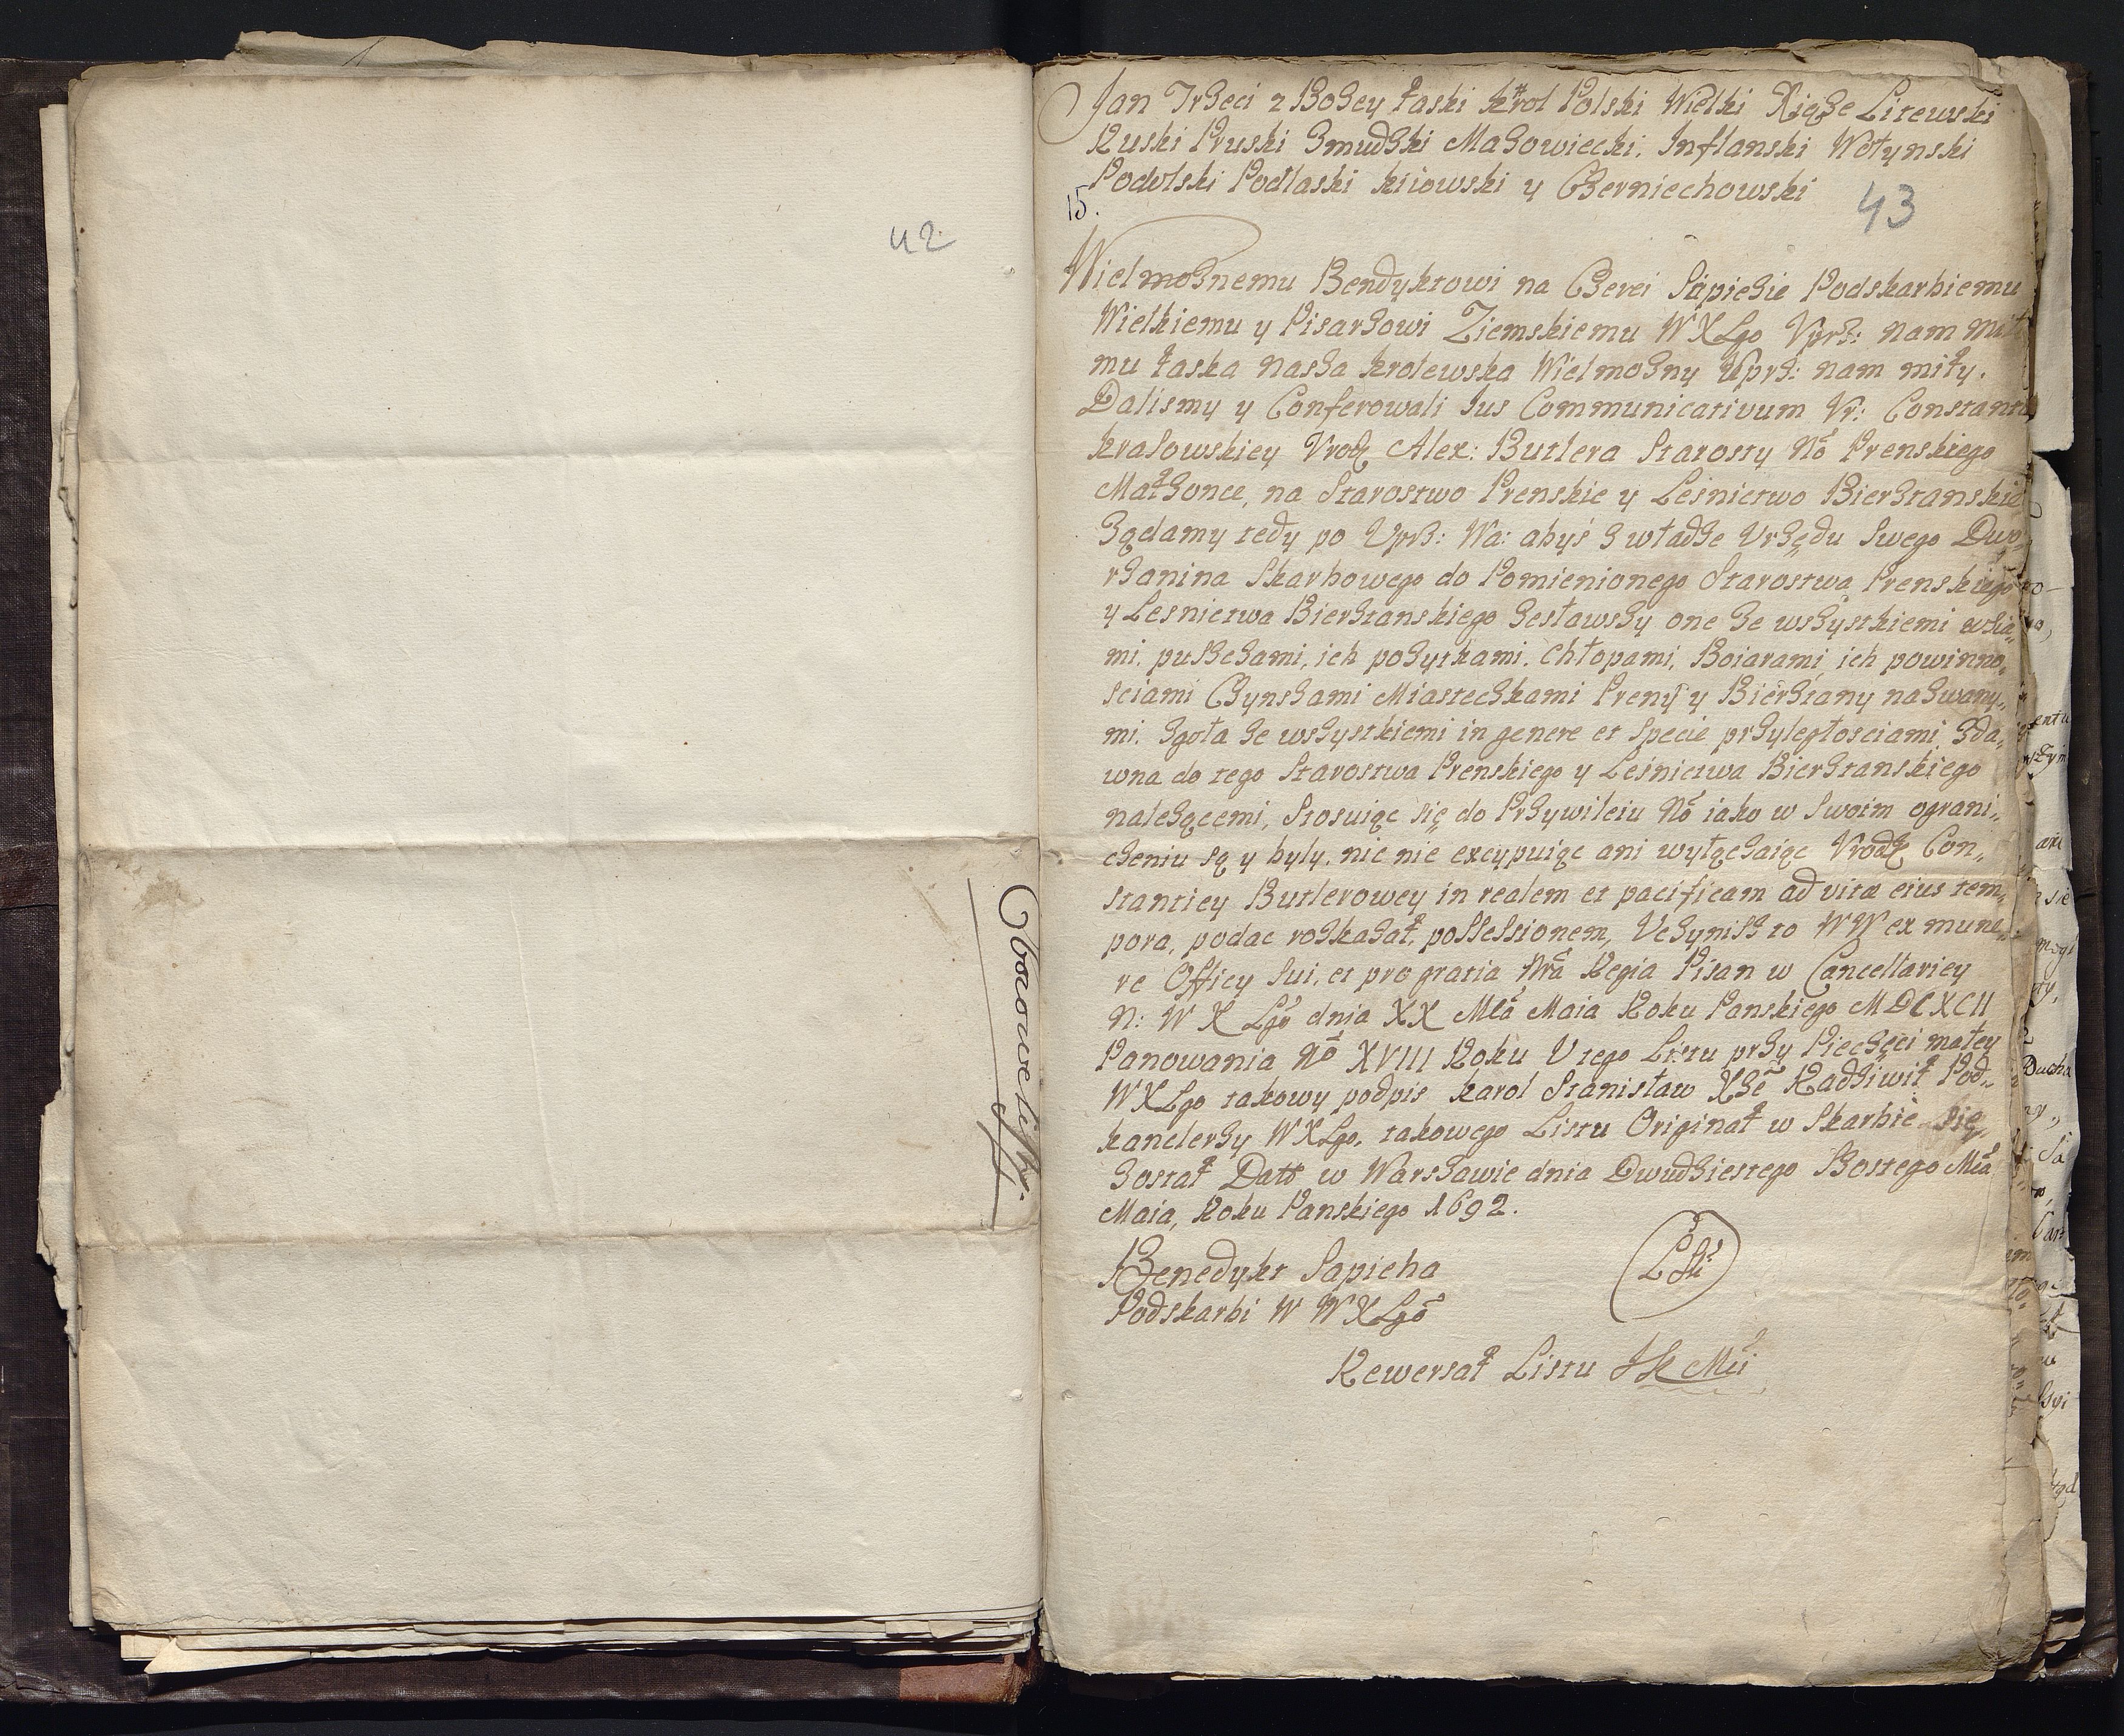 42
Jan Trzeci z Bozey łaski krol Polski Wielki Xiąże Litewski
Ruski Pruski Zmudzki Mazowiecki, Inflanski Wołynski
Podolski Podlaski kiiowski y Czerniechowski
15.
43
Wielmoznemu Bendyktowi na Czerei Sapiezie Podskarbiemu
Wielkiemu y Pisarzowi Ziemskiemu W X Lgo Vprz: nam mił
mu łaska nasza krolewska Wielmozny Uprz: nam miły.
Dalismy y Conferowali Ius Communicativum Vr: Constant
krasowskiey Vrodz Alex: Butlera Starosty Nō Prenskiego
Małzonce, na Starostwo Prenskie y Leśnictwo Biersztanskie
Ządamy tedy po Uprz: Wa: abyś z władze Vrzędu Swego Dwo„
rzanina Skarbowego do Pomienionego Starostwa Prenskiego
y Lesnictwa Biersztanskiego zesławszy one ze wszystkiemi wsia„
mi, puszczami, ich pozytkami, chłopami, Boiarami, ich powinno„
sciami Czynszami Miasteczkami Preny y Biersztany nazwany„
mi. Zgoła ze wszystkiemi in genere et Specie przyległosciami zda„
wna do tego Starostwa Prenskiego y Leśnictwa Biersztanskiego
nalezącemi, Stosuiąc się do Przywileiu Nō iako w Swoim ograni„
czeniu są y byly, nic nie excypuiąc ani wyłączaiąc Vrodz Con„
stantiey Butlerowey in realem et pacificam ad vitæ eius tem„
pora, podac rozkazał, possessionem, Vczynisz to WW ex mune„
re Officy Sui, et pro gratia Nrā Regia Pisan w Cancellariey
N: W X Lgō dnia XX Mcā Maia Roku Panskiego MDCXCII
Panowania Nō XVIII Roku V tego Listu przy Pieczęci małey
W X Lgo takowy podpis karol Stanisław Xżē Radziwił Pod„
kanclerzy W X Lgo, takowego Listu Originał w Skarbie się
został Datt w Warszawie dnia Dwudziestego Szostego Mcā
Maia, Roku Panskiego 1692.
Benedykt Sapieha
Podskarbi W W X Lgō
Rewersał Listu JK Mci